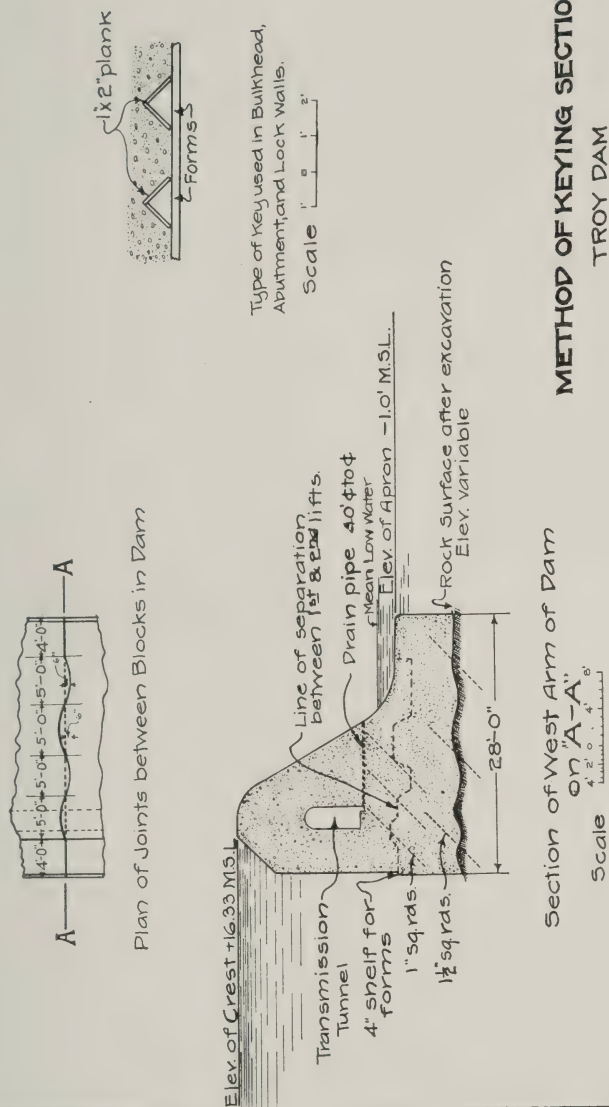 A
A
4'-0" 5'-0" 5'-0" 5'-0" 5'-0" 4'-0"
6"
6"
Plan of Joints between Blocks in Dam
1"x 2" plank
Forms
Type of Key used in Bulkhead,
Abutment, and Lock Walls.
Scale
1' 0 1' 2'
Elev. of Crest +16.33 M.S.L.
Transmission
Tunnel
4" shelf for
forms
1" sq. rds.
1½" sq. rds.
Line of separation
between 1st & 2nd lifts.
Drain pipe 40' ¢ to ¢
Mean Low Water
Elev. of Apron -1.0' M.S.L.
Rock surface after excavation
Elev. variable
28'-0"
Section of West Arm of Dam
on "A-A"
Scale
4' 2' 0 4' 8'
METHOD OF KEYING SECTIO
TROY DAM